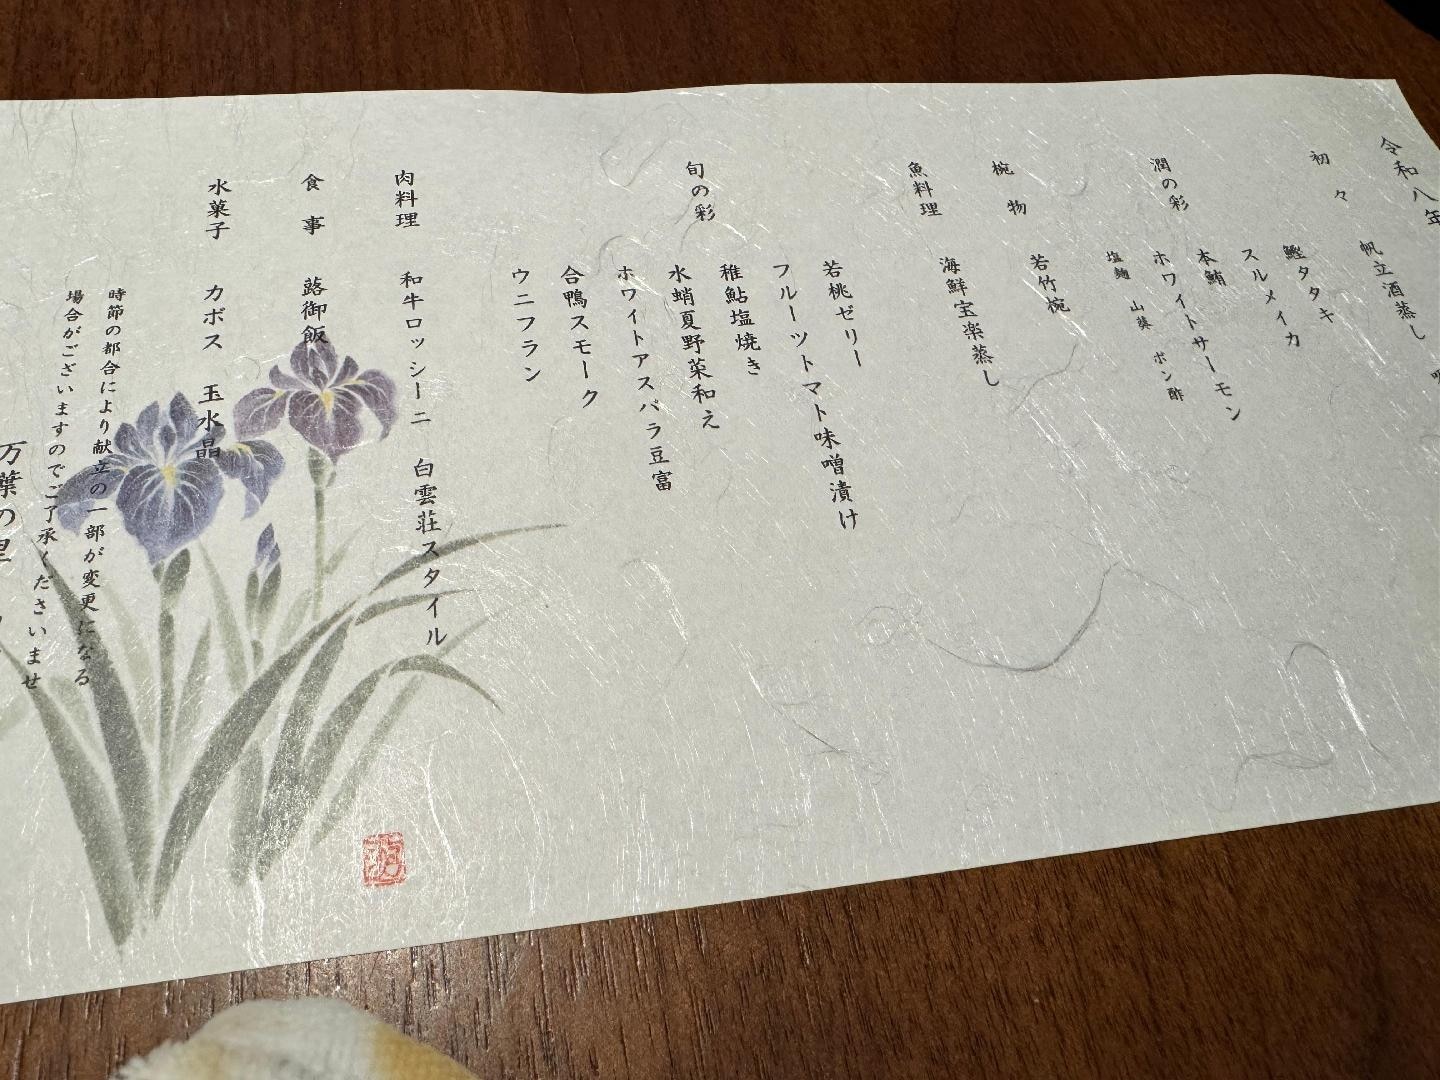 令和八年
初々
帆立酒蒸し
潤の彩
鰹タタキ
スルメイカ
本鮪
ホワイトサーモン
塩麹 山葵 ポン酢
椀物
若竹椀
魚料理
海鮮宝楽蒸し
旬の彩
若桃ゼリー
フルーツトマト味噌漬け
稚鮎塩焼き
水蛸夏野菜和え
ホワイトアスパラ豆富
合鴨スモーク
ウニフラン
肉料理
和牛ロッシーニ 白雲荘スタイル
食事
蕗御飯
水菓子
カボス 玉水晶
時節の都合により献立の一部が変更になる
場合がございますのでご了承くださいませ
万葉の里